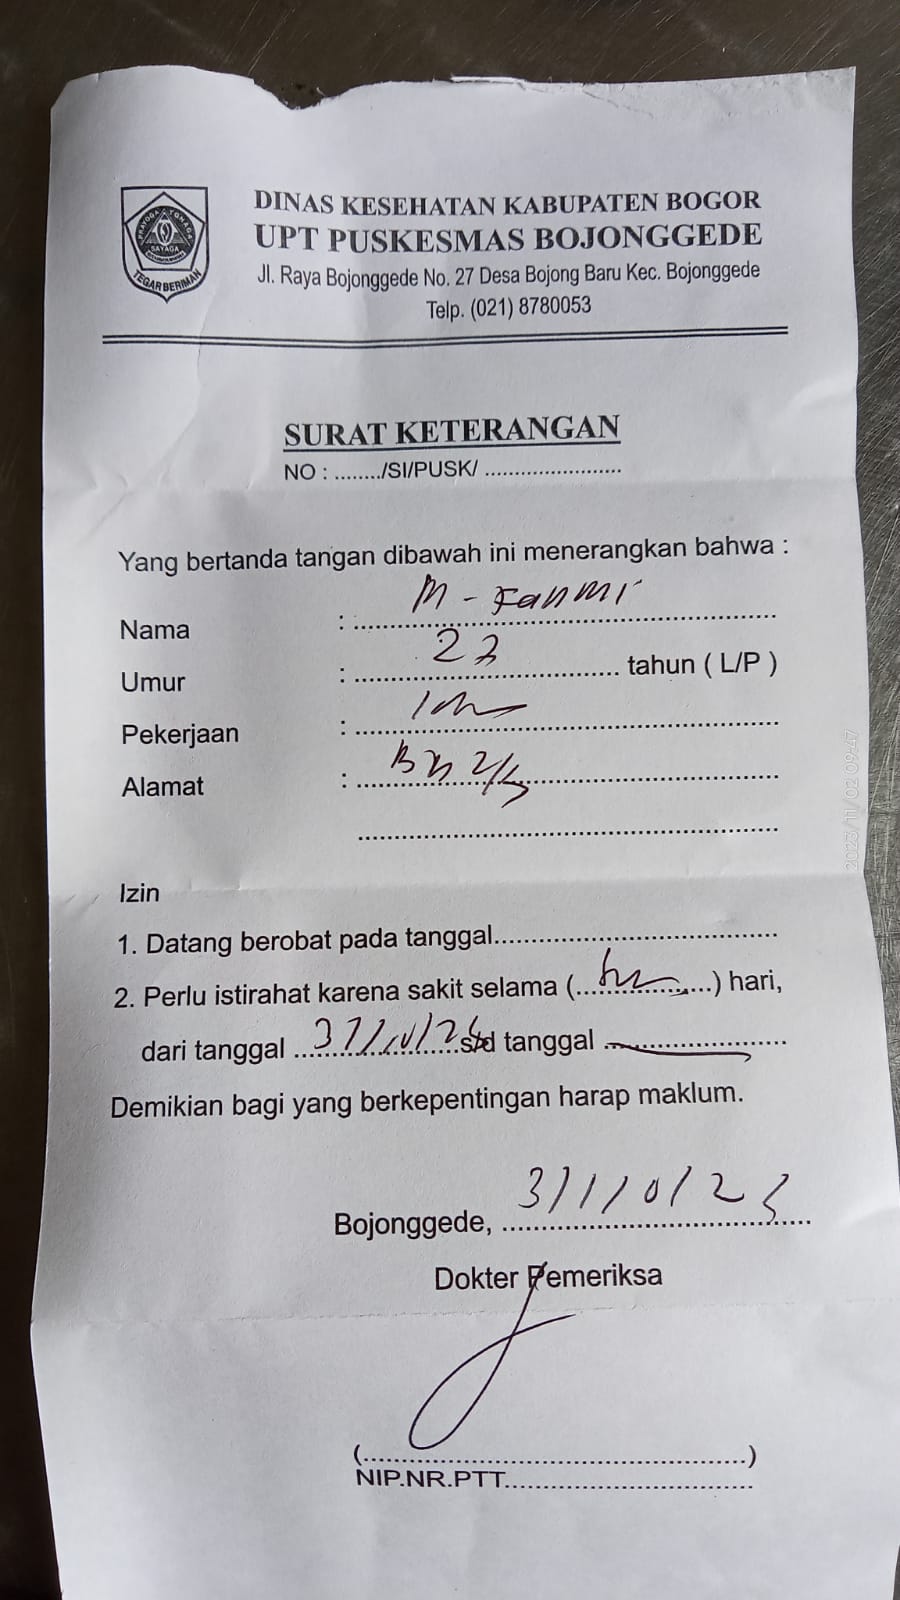 PRAYOGA TOHAGA
SAYAGA
TEGAR BERIMAN
DINAS KESEHATAN KABUPATEN BOGOR
UPT PUSKESMAS BOJONGGEDE
Jl. Raya Bojonggede No. 27 Desa Bojong Baru Kec. Bojonggede
Telp. (021) 8780053
SURAT KETERANGAN
NO : ......../SI/PUSK/ ........................
Yang bertanda tangan dibawah ini menerangkan bahwa :
Nama : M - Fahmi
Umur : 22 tahun ( L/P )
Pekerjaan :
Alamat :
Izin
1. Datang berobat pada tanggal..........................................
2. Perlu istirahat karena sakit selama (..................) hari,
dari tanggal s/d tanggal
Demikian bagi yang berkepentingan harap maklum.
Bojonggede, 31/10/23
Dokter Pemeriksa
(......................................................)
NIP.NR.PTT...................................
2023/11/02 09:47